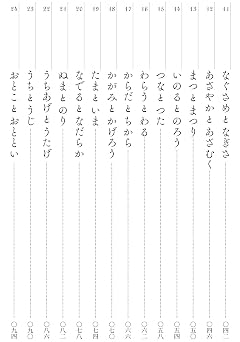 11 なぐさめとなぎさ 〇四二
12 あざやかとあざむく 〇四六
13 まつとまつり 〇五〇
14 いのるとのろう 〇五四
15 つなとつた 〇五八
16 わらうとわる 〇六二
17 からだとちから 〇六六
18 かがみとかげろう 〇七〇
19 たまといま 〇七四
20 なでるとなだらか 〇七八
21 ぬまとのり 〇八二
22 うちあげとうたげ 〇八六
23 うちとうじ 〇九〇
24 おとことおととい 〇九四